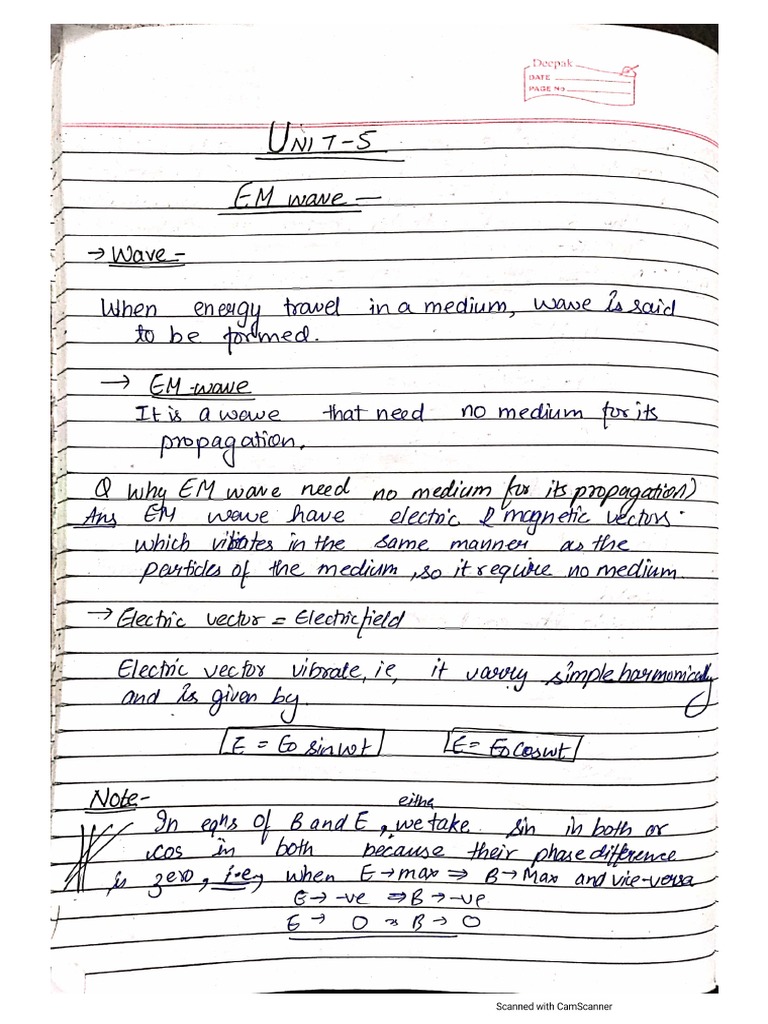 Deepak
DATE
PAGE NO
UNIT-5
EM wave —
→ Wave -
When energy travel in a medium, wave is said
to be formed.
→ EM-wave
It is a wave that need no medium for its
propagation.
Q Why EM wave need no medium for its propagation?
Ans EM wave have electric & magnetic vectors.
which vibrates in the same manner as the
particles of the medium, so it require no medium.
→ Electric vector = Electric field
Electric vector vibrate, ie, it varry simple harmonically
and is given by
E = E0 sin wt E = E0 cos wt
Note-
eithe
In eqns of B and E, we take sin in both or
cos in both because their phase difference
is zero, i.e, when E → max ⇒ B → Max and vice-versa
E → -ve ⇒ B → -ve
E → 0 ⇒ B → 0
Scanned with CamScanner